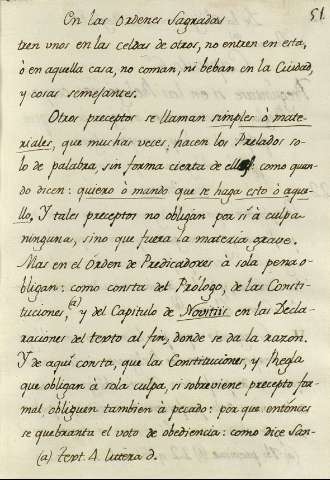 51.
En las Ordenes Sagradas
tren vnos en las celdas de otros, no entren en esta,
ò en aquella casa, no coman, ni beban en la Ciudad,
y cosas semejantes.
Otros preceptos se llaman simples ò mate-
riales, que muchas veces, hacen los Prelados so-
lo de palabra, sin forma cierta de ellos: como quan-
do dicen: quiero ò mando que se haga esto ò aque-
llo. Y tales preceptos no obligan por si à culpa
ninguna, sino que fuera la materia grave.
Mas en el Orden de Predicadores à sola pena o-
bligan: como consta del Prólogo, de las Consti-
tuciones, (a) y del Capitulo de Novitiis en las Decla-
raciones del texto al fin, donde se da la razon.
Y de aquí consta, que las Constituciones, y Regla
que obligan à sola culpa, si sobreviene precepto for-
mal, obliguen tambien à pecado: por que entónces
se quebranta el voto de obediencia: como dice San-
(a) Text. 4. littera d.